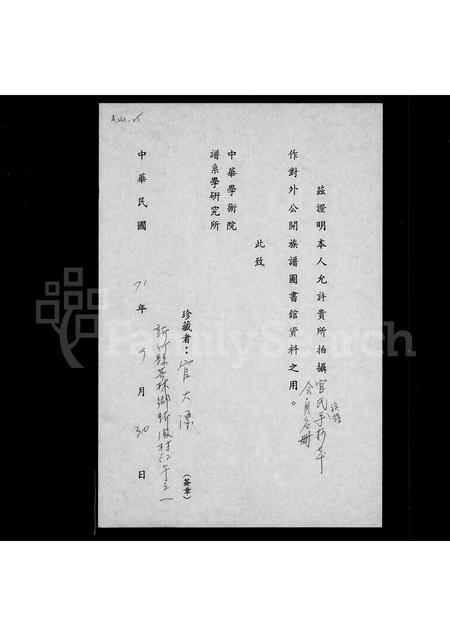 A260-25
茲證明本人允許貴所拍攝官氏手抄本
族譜
会員名冊
作對外公開族譜圖書館資料之用。
此致
中華學術院
譜系學研究所
珍藏者：官大
(簽章)
新竹縣芎林鄉新鳳村
中華民國 71 年 9 月 30 日
FamilySearch